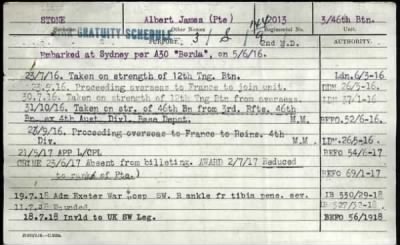 STONE Albert James (Pte) 2013 3/46th Btn.
Other Names
GRATUITY SCHEDULE
2nd M.D. AUTHORITY
Embarked at Sydney per A30 "Borda", on 5/6/16.
23/7/16. Taken on strength of 12th Tng. Btn. Ldn. 6/3-16
Proceeding overseas to France to join unit. LDN 26/3-16
30.7.16. Taken on strength of 12th Tng Btn from overseas. LDN 37/1-16
31/10/16. Taken on str. of 46th Bn from 3rd. Rfts. 46th
Bn. 4th Aust. Divl. Base Depot. M.M. BEFO.52/6-16
Proceeding overseas to France to Reins. 4th
Div. M.M. LDN.26/5-16
21/5/17 APP L/CPL BEFO 54/6-17
CRIME 23/6/17 Absent from billeting. AWARD 2/7/17 Reduced
to rank of Pte.) BEFO 69/1-17
19.7.18 Adm Exeter War Hosp SW. R ankle fr tibia pene. sev. IB 330/29-18
Wounded. IB 327/32-18
18.7.18 Invld to UK SW Leg. BEFO 56/1918